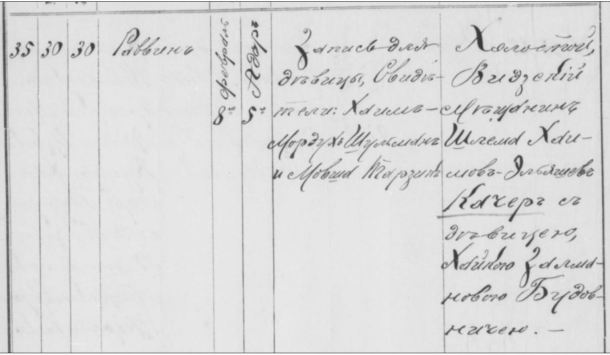 35 30 30 Раввинъ
Февраль 8го
Адаръ 5го
Запись для
дѣвицы, Свидѣ-
тели: Хаимъ-
Мордухъ Шульманъ
и Мовша
Холостой,
Видзскій
мѣщанинъ
Шлема Хаи-
мовъ-Эльяшевъ
Качеръ съ
дѣвицею,
Хайкою Залма-
новою Будов-
ничею. —